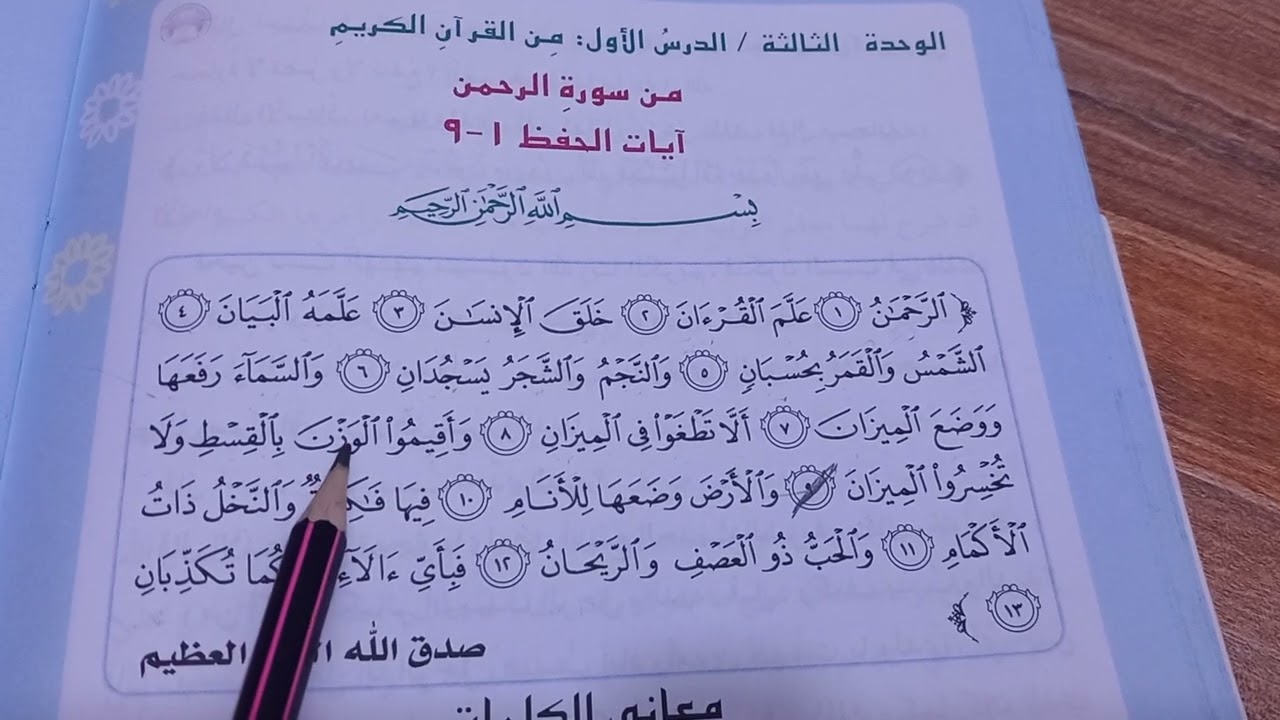 الوحدة الثالثة / الدرسُ الأول: مِن القرآنِ الكريمِ
من سورةِ الرحمن
آيات الحفظ ١-٩
بِسْمِ ٱللَّهِ ٱلرَّحْمَٰنِ ٱلرَّحِيمِ
﴿ ٱلرَّحْمَٰنُ ١ عَلَّمَ ٱلْقُرْءَانَ ٢ خَلَقَ ٱلْإِنسَٰنَ ٣ عَلَّمَهُ ٱلْبَيَانَ ٤
ٱلشَّمْسُ وَٱلْقَمَرُ بِحُسْبَانٍ ٥ وَٱلنَّجْمُ وَٱلشَّجَرُ يَسْجُدَانِ ٦ وَٱلسَّمَآءَ رَفَعَهَا
وَوَضَعَ ٱلْمِيزَانَ ٧ أَلَّا تَطْغَوْا۟ فِى ٱلْمِيزَانِ ٨ وَأَقِيمُوا۟ ٱلْوَزْنَ بِٱلْقِسْطِ وَلَا
تُخْسِرُوا۟ ٱلْمِيزَانَ ٩ وَٱلْأَرْضَ وَضَعَهَا لِلْأَنَامِ ١٠ فِيهَا وَٱلنَّخْلُ ذَاتُ
ٱلْأَكْمَامِ ١١ وَٱلْحَبُّ ذُو ٱلْعَصْفِ وَٱلرَّيْحَانُ ١٢ فَبِأَىِّ تُكَذِّبَانِ
١٣ ﴾
صدق الله العظيم
معاني الكلمات